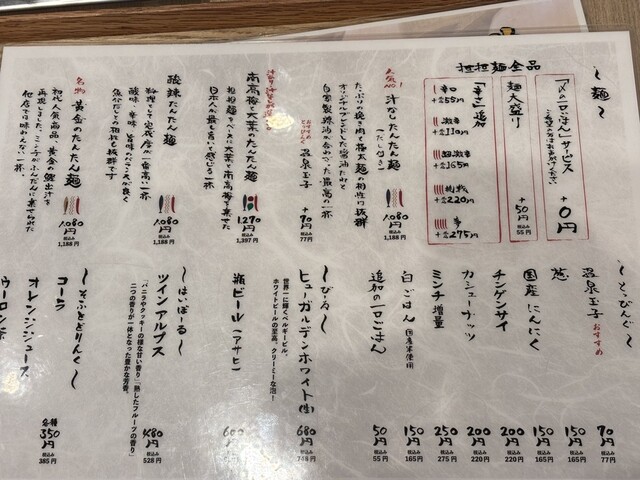 〜麺〜
担担麺全品
「〆の一口ごはん」サービス
+0円
麺大盛り
+50円
税込み
55円
「辛さ」追加
+税込55円
+税込110円
+税込165円
+税込220円
+税込275円
人気No.1
汁なしたんたん麺
(だし付き)
1,080円
税込み
1,188円
たっぷりの挽き肉と極太麺の相性は抜群
オリジナルブレンドした醤油だれと
自家製辣油が合わさった最高の一杯
おすすめ
温泉玉子
+70円
税込み
77円
南高梅と大葉のたんたん麺
1,270円
税込み
1,397円
担担麺をベースに大葉と南高梅を乗せた
日本人が最も喜いと感じる一杯
酸辣たんたん麺
1,080円
税込み
1,188円
料理として完成度が一番高い一杯
酸味、辛味、旨味のバランスが良く
魚介だしとの相性も抜群です
名物
黄金のたんたん麺
1,080円
税込み
1,188円
初代人気商品、黄金の鰹出汁を
他店では味わえない一杯、
〜とっぴんぐ〜
温泉玉子
おすすめ
70円
税込み
77円
葱
150円
税込み
165円
国産にんにく
150円
税込み
165円
チンゲンサイ
200円
税込み
220円
カシューナッツ
200円
税込み
220円
ミンチ増量
250円
税込み
275円
白ごはん
国産米使用
150円
税込み
165円
追加の一口ごはん
50円
税込み
55円
〜びーる〜
ヒューガルデンホワイト(生)
680円
税込み
748円
世界一に輝くベルギービール、
ホワイトビールの至高、クリーミーな泡!
瓶ビール(アサヒ)
600円
〜はいぼーる〜
ツインアルプス
480円
税込み
528円
「バニラやクッキーの様な甘い香り」「熟したフルーツの香り」
二つの香りが一体となった豊かな芳香。
〜そふとどりんく〜
コーラ
オレンジジュース
ウーロン茶
各種
350円
税込み
385円